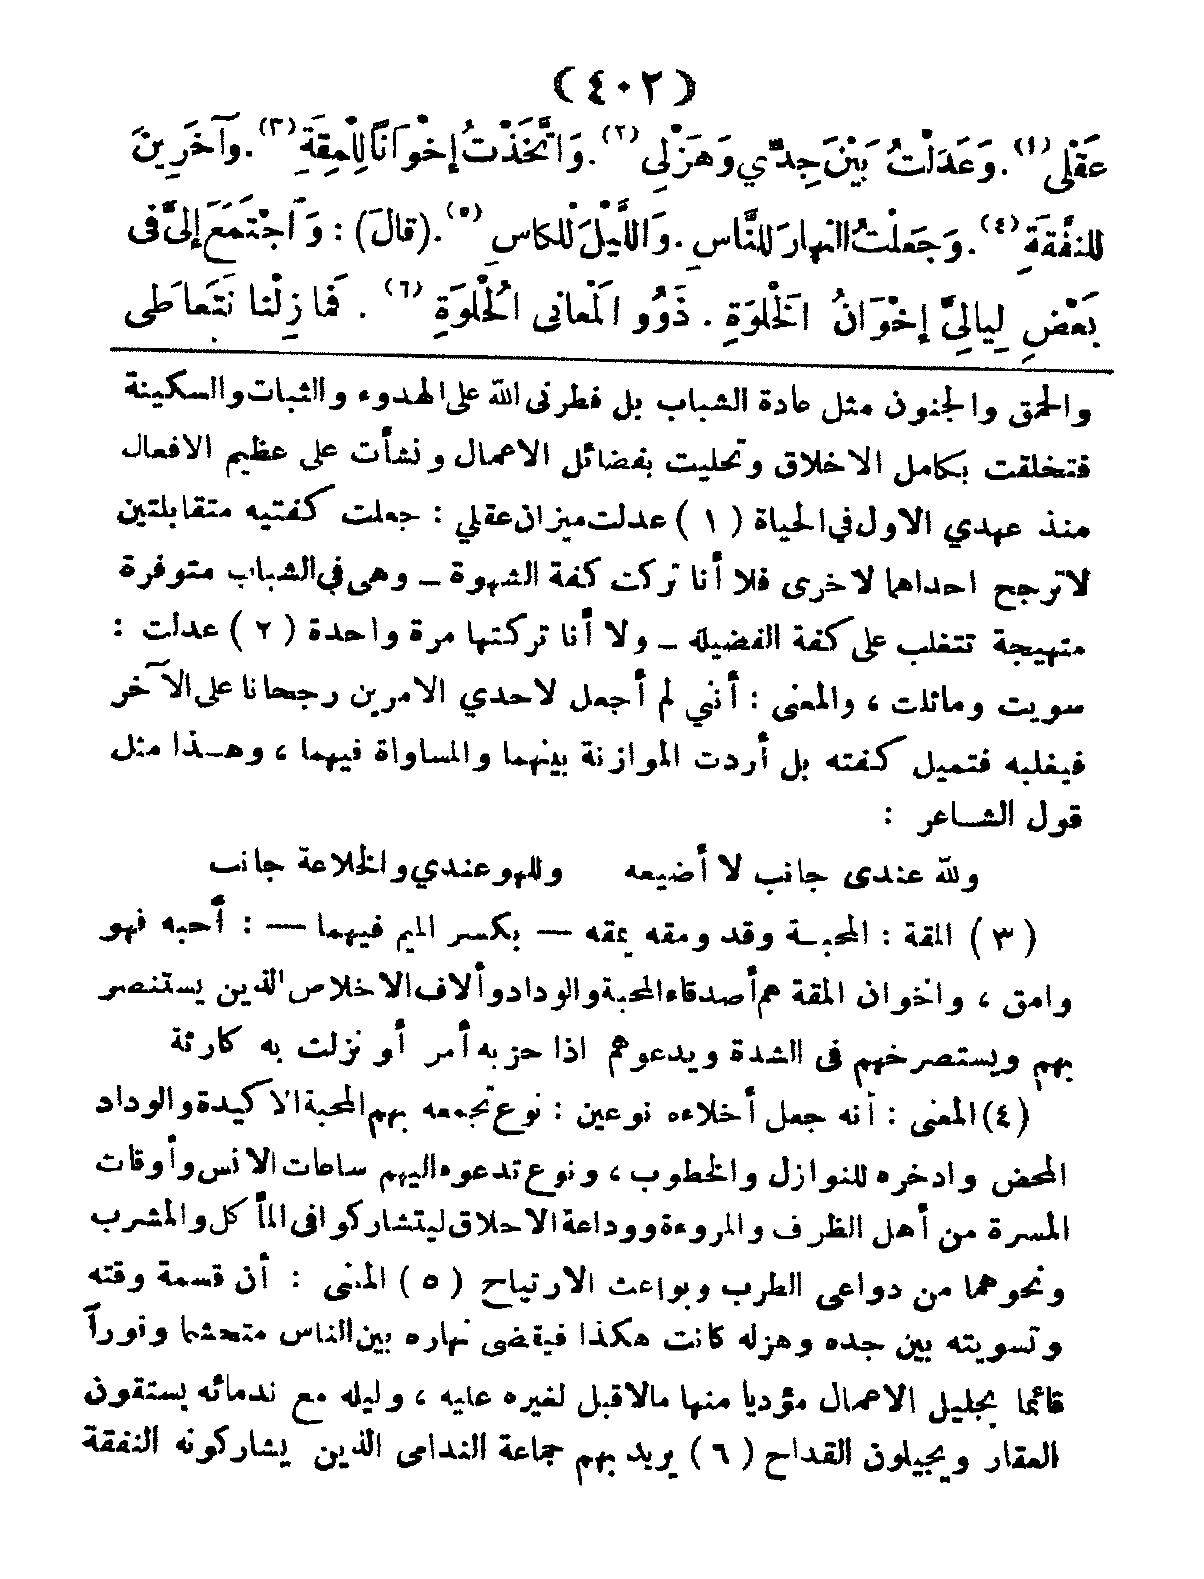 (٤٠٢)
عَقْلِي (١). وَعَدَلْتُ بَيْنَ جِدِّي وَهَزْلِي (٢). وَاتَّخَذْتُ إِخْوَانًا لِلْمِقَةِ (٣). وَآخَرِينَ
لِلنَّفَقَةِ (٤). وَجَعَلْتُ النهارَ لِلنَّاسِ. وَاللَّيْلَ لِلْكاسِ (٥). (قالَ): وَاَجْتَمَعَ إِلَيَّ فى
بَعْضِ لِيالِيَّ إِخْوَانُ الخَلْوَةِ. ذَوُو المَعانى الحُلْوَةِ (٦). فَمَا زِلْنا نَتَعاطَى
والحمق والجنون مثل عادة الشباب بل فطرنى الله على الهدوء والثبات والسكينة
فتخلقت بكامل الاخلاق وتحليت بفضائل الاعمال ونشأت على عظيم الافعال
منذ عهدي الاول في الحياة (١) عدلت ميزان عقلي : جعلت كفتيه متقابلتين
لا ترجح احداهما لاخرى فلا أنا تركت كفة الشهوة ـ وهى في الشباب متوفرة
متهيجة تتغلب على كفة الفضيلة ـ ولا أنا تركتها مرة واحدة (٢) عدلت :
سويت وماثلت ، والمعنى : أنني لم أجعل لاحدي الامرين رجحانا على الآخر
فيغلبه فتميل كفته بل أردت الموازنة بينهما والمساواة فيهما ، وهـذا مثل
قول الشـاعر :
ولله عندى جانب لا أضيعه وللهو عندي والخلاعة جانب
(٣) المقة : المحبـة وقد ومقه يمقه — بكسر الميم فيهما — : أحبه فهو
وامق ، واخوان المقة هم أصدقاء المحبة والوداد وألاف الاخلاص الذين يستنصر
بهم ويستصرخهم فى الشدة ويدعوهم اذا حزبه أمر أو نزلت به كارثة
(٤) المعنى : أنه جعل أخلاءه نوعين : نوع تجمعه بهم المحبة الاكيدة والوداد
المحض وادخره للنوازل والخطوب ، ونوع تدعوه اليهم ساعات الانس وأوقات
المسرة من أهل الظرف والمروءة ووداعة الاحلاق ليتشاركوا فى المأكل والمشرب
ونحوهما من دواعى الطرب وبواعث الارتياح (٥) المعنى : أن قسمة وقته
وتسويته بين جده وهزله كانت هكذا فيقضى نهاره بين الناس متحشما وقوراً
قائما بجليل الاعمال مؤديا منها مالا قبل لغيره عليه ، وليله مع ندمائه يستقون
العقار ويجيلون القداح (٦) يريد بهم جماعة الندامى الذين يشاركونه النفقة